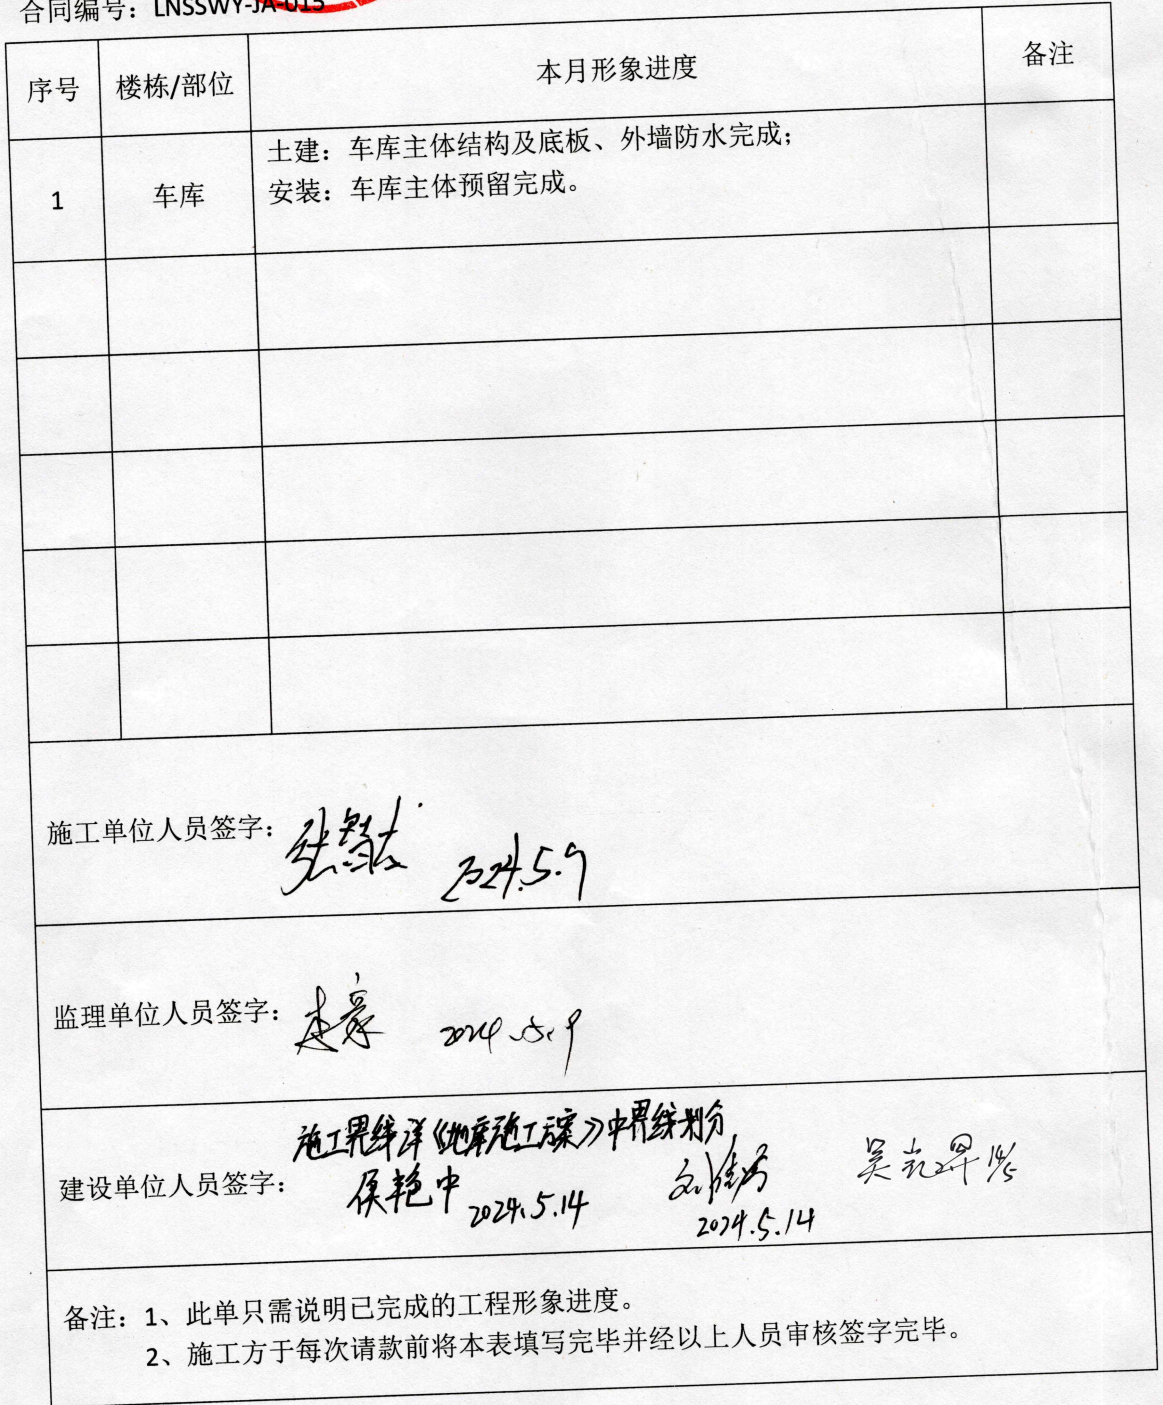 合同编号：LNSSWY-JA-015
序号 楼栋/部位 本月形象进度 备注
1 车库 土建：车库主体结构及底板、外墙防水完成；
安装：车库主体预留完成。
施工单位人员签字：
2024.5.9
监理单位人员签字：
2024.5.9
施工界线详《地库施工方案》中界线划分
建设单位人员签字： 侯艳中 2024.5.14
2024.5.14
备注：1、此单只需说明已完成的工程形象进度。
2、施工方于每次请款前将本表填写完毕并经以上人员审核签字完毕。